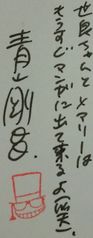 世良ちゃんとメアリーは
もうすぐマンガに出て来るよ(笑)。
青山剛昌